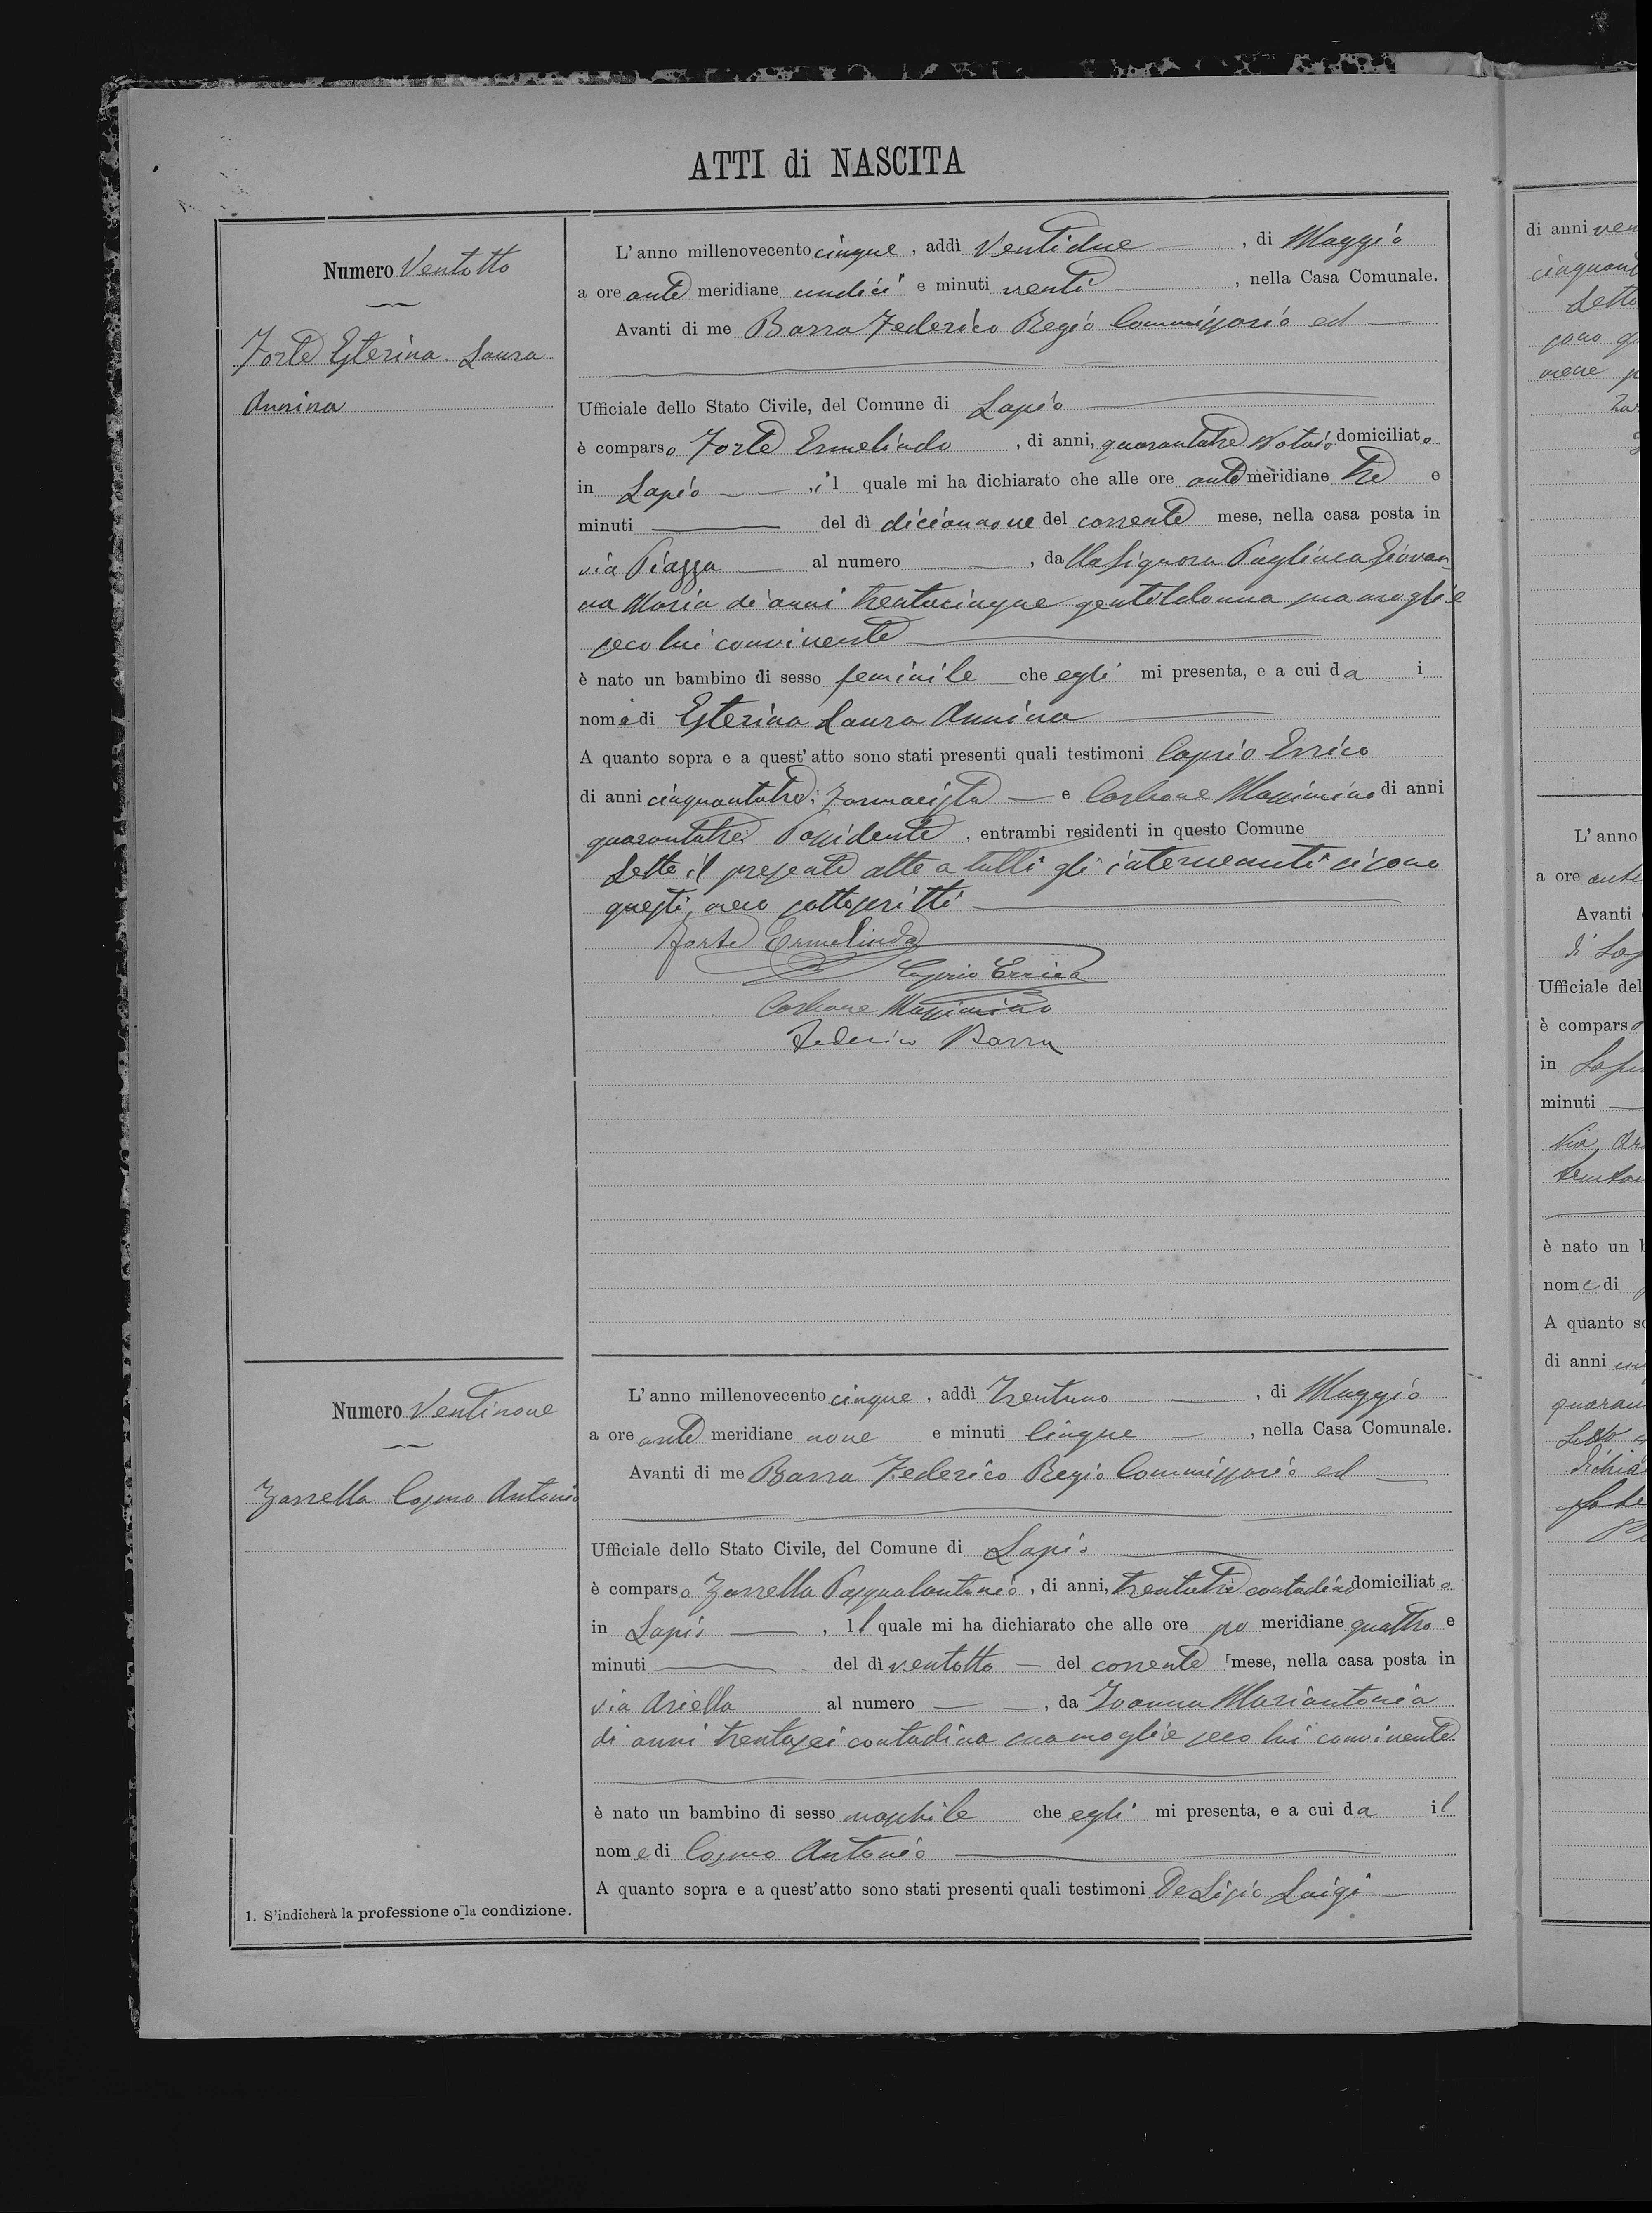 ATTI di NASCITA
Numero Ventotto
Forte Esterina Laura
Annina
L'anno millenovecento cinque, addì Ventidue, di Maggio
a ore ante meridiane undici e minuti venti, nella Casa Comunale.
Avanti di me Barra Federico Regio Commissario ed
Ufficiale dello Stato Civile, del Comune di Lapio
è comparso Forte Ermelindo, di anni, quarantatre Notaio domiciliato
in Lapio, il quale mi ha dichiarato che alle ore ante meridiane tre e
minuti del dì diciannove del corrente mese, nella casa posta in
via Piazza al numero, da lla Signora Pagliuca Giovan
na Maria di anni trentacinque gentildonna sua moglie
seco lui convivente
è nato un bambino di sesso feminile che egli mi presenta, e a cui da i
nomi di Esterina Laura Annina
A quanto sopra e a quest'atto sono stati presenti quali testimoni Caprio Errico
di anni cinquantatre; Farmacista e Carbone Massimino di anni
quarantatre Possidente, entrambi residenti in questo Comune
Letto il presente atto a tutti gli intervenuti si sono
questi meco sottoscritti
Forte Ermelindo
Caprio Errico
Carbone Massimino
Federico Barra
Numero Ventinove
Zarrella Cosmo Antonio
L'anno millenovecento cinque, addì Trentuno, di Maggio
a ore ante meridiane nove e minuti Cinque, nella Casa Comunale.
Avanti di me Barra Federico Regio Commissario ed
Ufficiale dello Stato Civile, del Comune di Lapio
è comparso Zarrella Pasqualantonio, di anni, trentatre contadino domiciliato
in Lapio, il quale mi ha dichiarato che alle ore po meridiane quattro e
minuti del dì ventotto del corrente mese, nella casa posta in
via Ariella al numero, da Ioanna Mariantonia
di anni trentasei contadina sua moglie seco lui convivente
è nato un bambino di sesso maschile che egli mi presenta, e a cui da il
nome di Cosmo Antonio
A quanto sopra e a quest'atto sono stati presenti quali testimoni De Lisio Luigi
1. S'indicherà la professione o la condizione.
di anni
cinquant
Letto
L'anno
a ore ante
Avanti
Ufficiale del
è comparso
in
minuti
è nato un
nome di
A quanto so
di anni
quaran